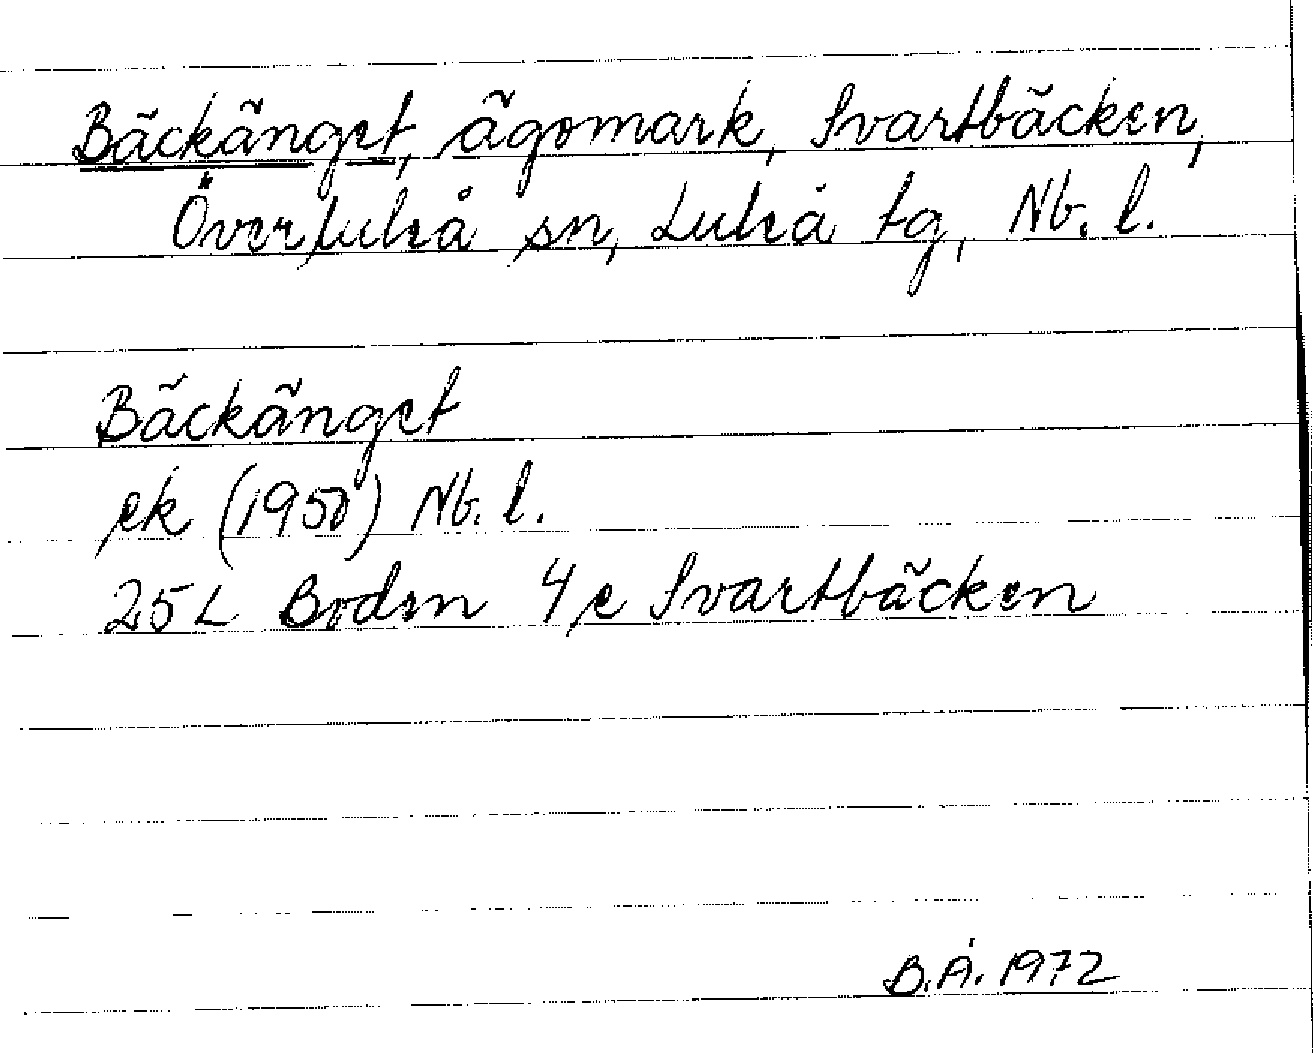 Bäckänget, ägomark, Svartbäcken,
Överluleå sn, Luleå tg, Nb. l.
Bäckänget
ek (1950) Nb. l.
25 L Boden 4 e Svartbäcken
B.Å. 1972